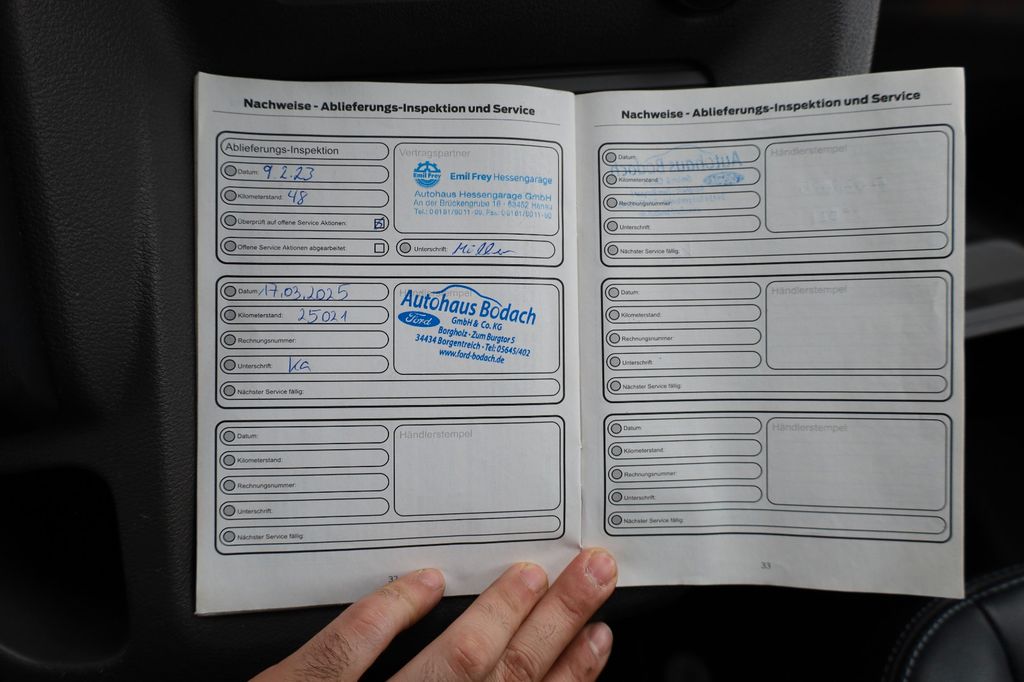 Nachweise - Ablieferungs-Inspektion und Service
Ablieferungs-Inspektion
Datum: 9.2.23
Kilometerstand: 48
Überprüft auf offene Service Aktionen:
Offene Service Aktionen abgearbeitet:
Vertragspartner
Emil Frey
Emil Frey Hessengarage
Autohaus Hessengarage GmbH
An der Brückengrube 16 - 63452 Hanau
Unterschrift:
Datum: 17.03.2025
Kilometerstand: 25021
Rechnungsnummer:
Unterschrift: Ka
Nächster Service fällig:
Händlerstempel
Autohaus Bodach
Ford
GmbH & Co. KG
Borgholz · Zum Burgtor 5
34434 Borgentreich · Tel: 05645/402
www.ford-bodach.de
Datum:
Kilometerstand:
Rechnungsnummer:
Unterschrift:
Nächster Service fällig:
Händlerstempel
Nachweise - Ablieferungs-Inspektion und Service
Datum:
Kilometerstand:
Rechnungsnummer:
Unterschrift:
Nächster Service fällig:
Händlerstempel
Datum:
Kilometerstand:
Rechnungsnummer:
Unterschrift:
Nächster Service fällig:
Händlerstempel
Datum:
Kilometerstand:
Rechnungsnummer:
Unterschrift:
Nächster Service fällig:
Händlerstempel
33